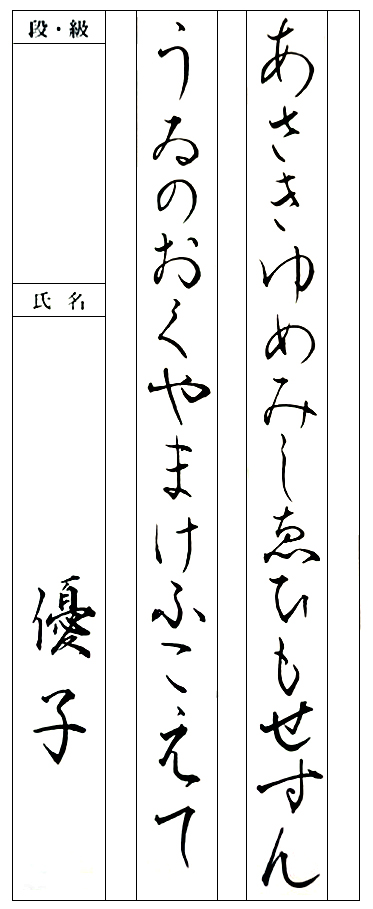 あさきゆめみしゑひもせすん
うゐのおくやまけふこえて
段・級
氏名
優子